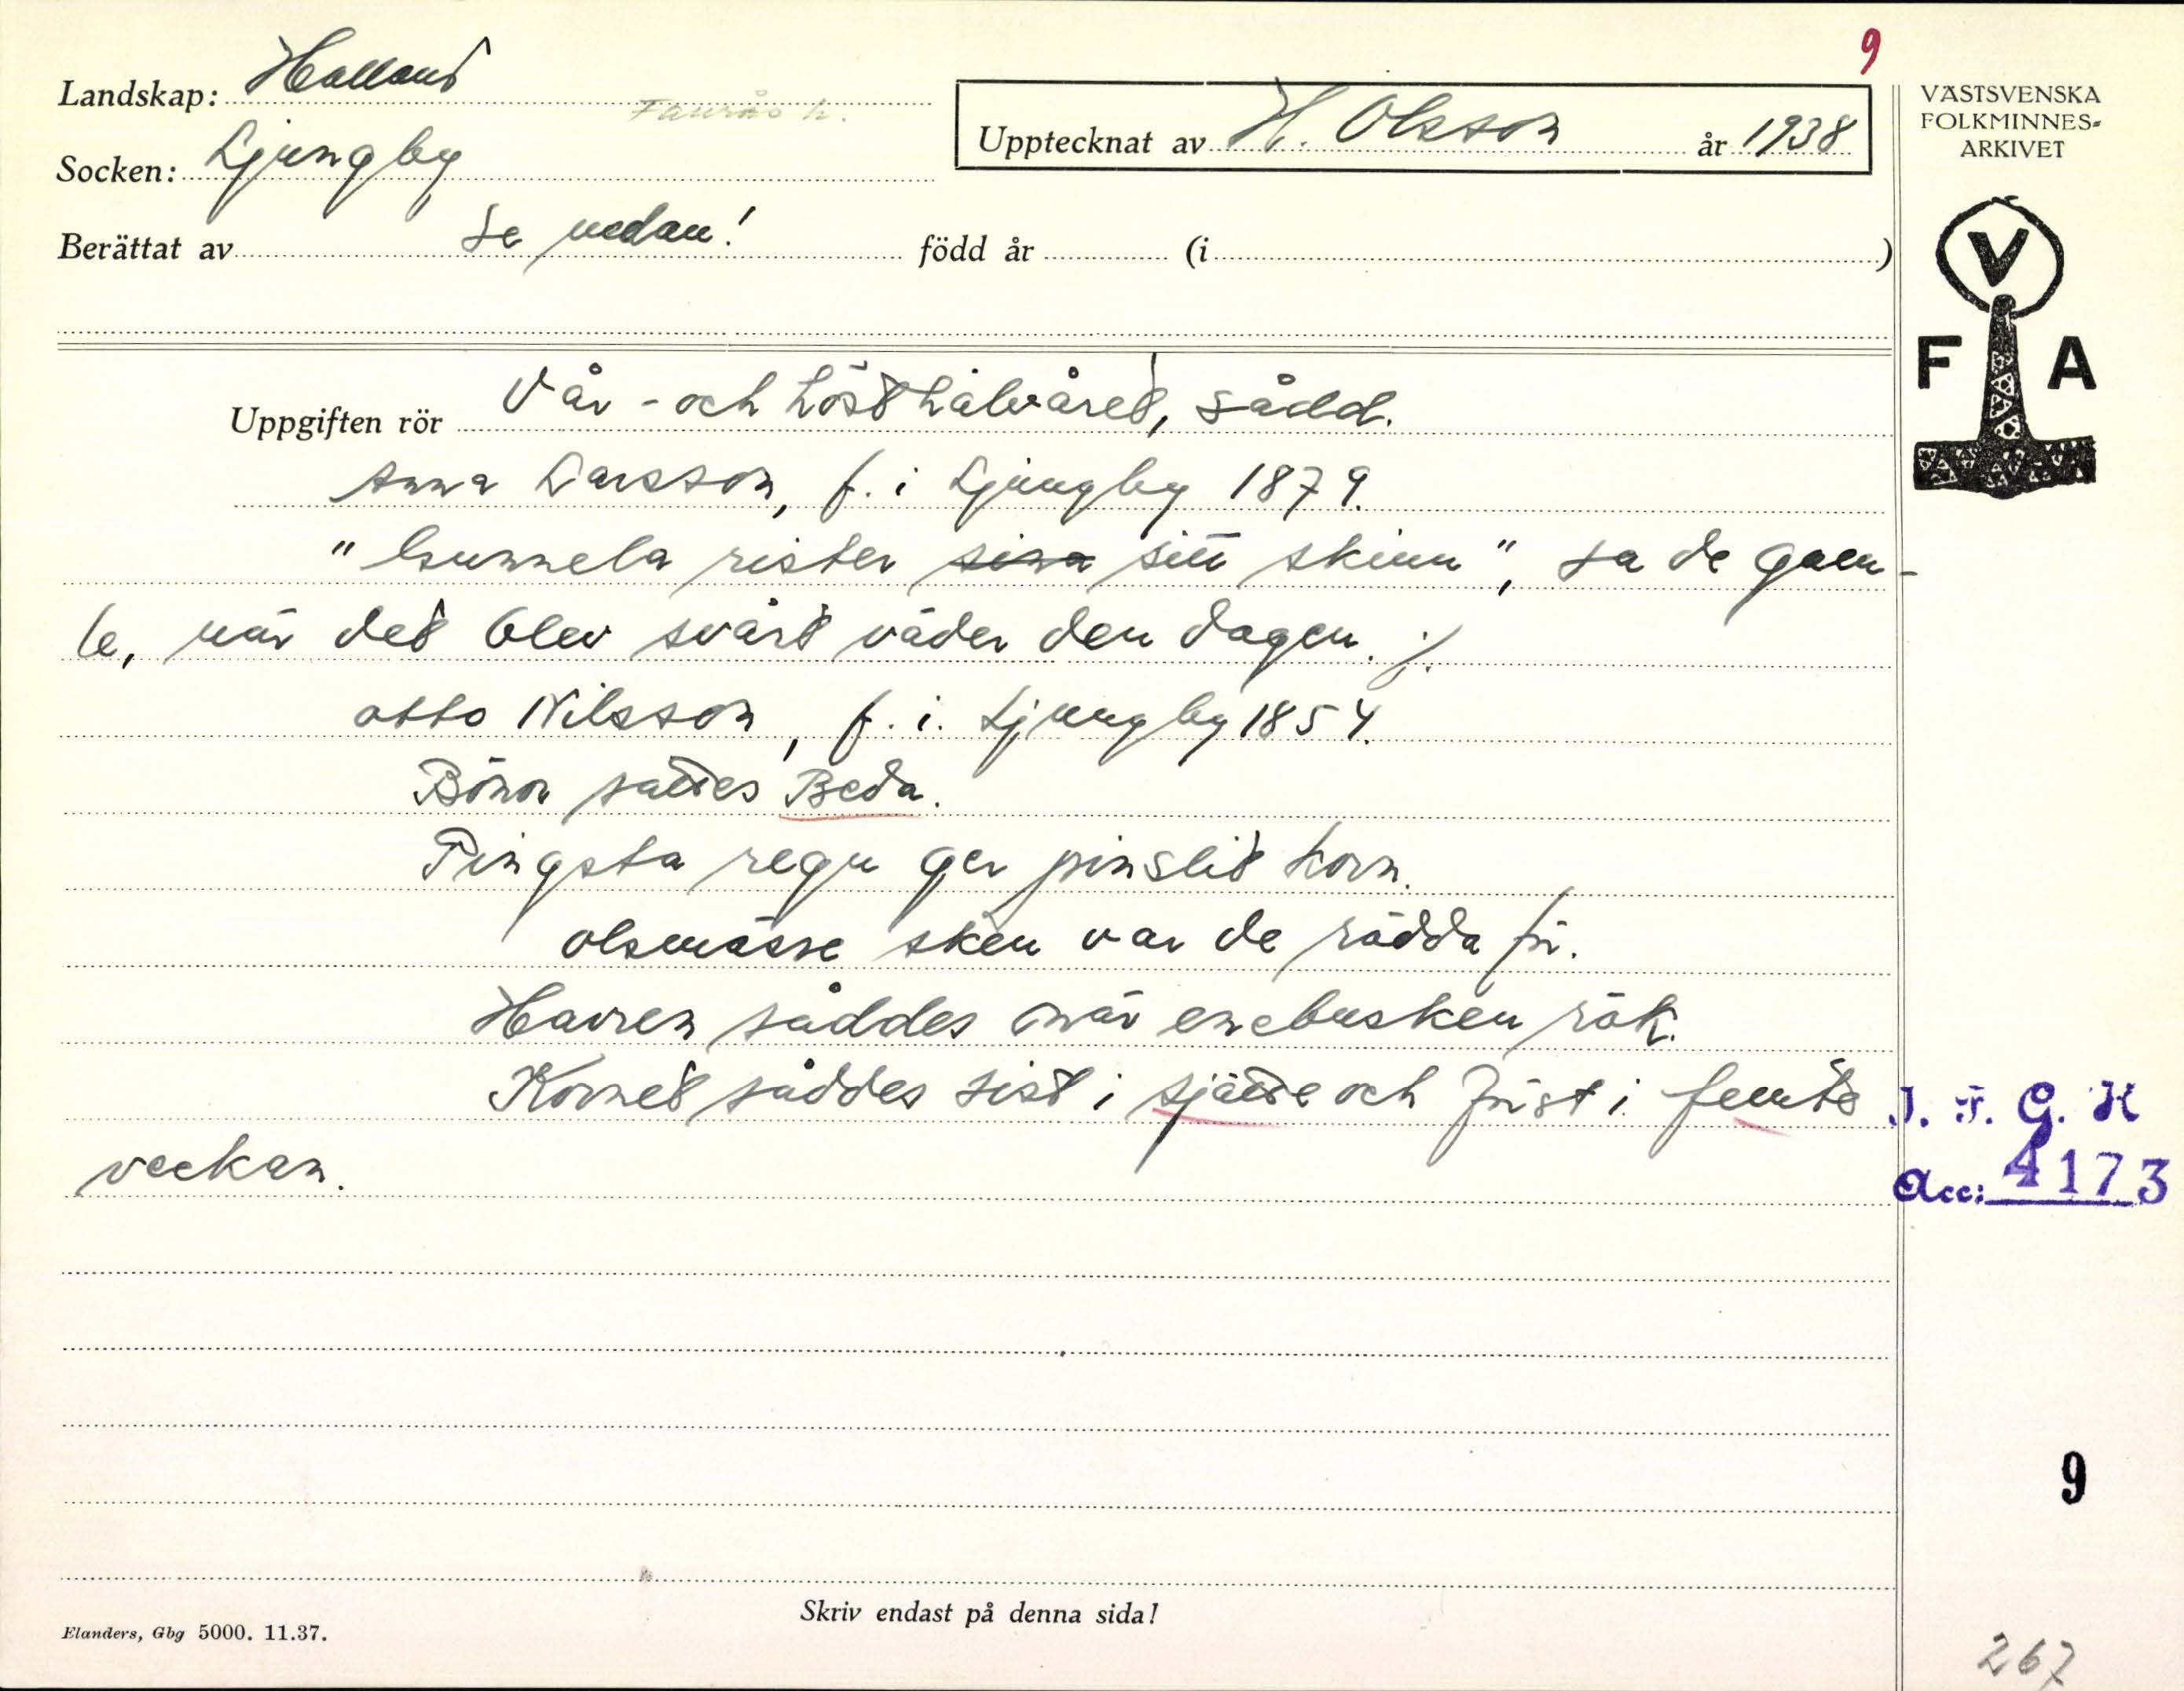 9
Landskap: Halland
Faurås h.
Upptecknat av H. Olsson år 1938
VÄSTSVENSKA
FOLKMINNES-
ARKIVET
Socken: Ljungby
Berättat av se nedan! född år (i )
V
F A
Uppgiften rör Vår- och hösthalvåret, sådd.
Anna Larsson, f. i Ljungby 1879.
"Gunnela rister sina sitt skinn", sa de gam-
le, när det blev svårt väder den dagen. ./.
Otto Nilsson, f. i. Ljungby 1854.
Bönor sattes Beda.
Pingsta regn ger pinslit korn.
Olsmässe sken var de rädda för.
Havren såddes när enebusken rök.
Kornet såddes sist i sjätte och först i femte
veckan.
J. F. G. H
Acc: 4173
9
Skriv endast på denna sida!
Elanders, Gbg 5000. 11.37.
267